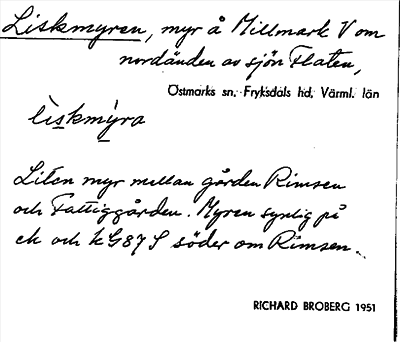 Liskmyren, myr å Millmark V om
nordänden av sjön Flaten,
Östmarks sn, Fryksdals hd, Värml. län
lìskmỳra
Liten myr mellan gården Rimsen
och Fattiggården. Myren synlig på
ek och k G87 S söder om Rimsen.
RICHARD BROBERG 1951